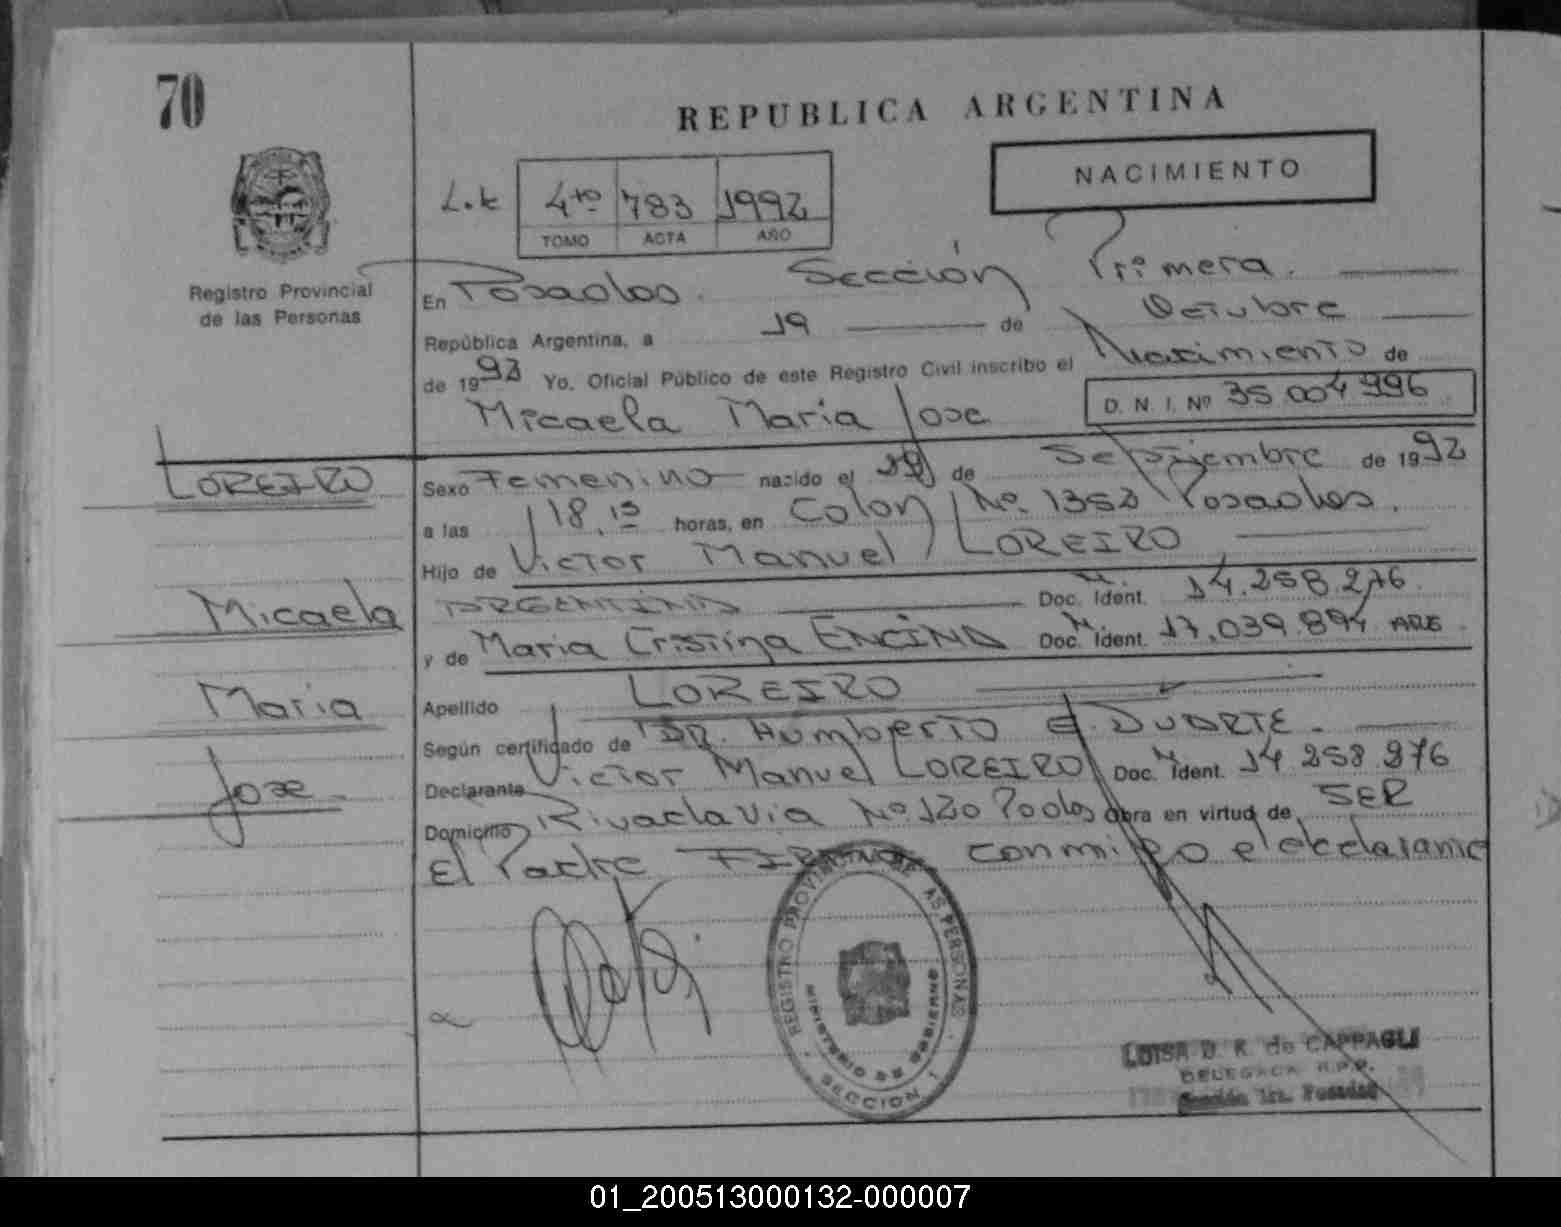 70
REPUBLICA ARGENTINA
NACIMIENTO
4to 783 1992
TOMO ACTA AÑO
Registro Provincial
de las Personas
En Posadas. Sección Primera.
República Argentina, a 19 de Octubre
de 1992 Yo, Oficial Público de este Registro Civil inscribo el Nacimiento de
Micaela Maria Jose D. N. I. Nº 35.004996
LOREIRO
Sexo Femenino nacido el de Septiembre de 1992
a las 18,15 horas, en Colon Nº. 1352 Posadas.
Hijo de Victor Manuel LOREIRO
Micaela
ARGENTINA Doc. Ident. M. 14.258.276.
y de Maria Cristina ENCINA Doc. Ident. 17.039.894 ARG
Maria
Apellido LOREIRO
Según certificado de DR. Humberto E. DUARTE.
Jose
Declarante Victor Manuel LOREIRO Doc. Ident. M 14 258 276
Domicilio Rivadavia Nº 120 Pdas Obra en virtud de SER
El Padre FIRMANDO conmigo el declarante
REGISTRO PROVINCIAL DE LAS PERSONAS
MINISTERIO DE GOBIERNO
SECCION 1
LUISA D. K. de CAPPAGLI
DELEGADA R.P.P.
Sección 1ra. Posadas
01_200513000132-000007